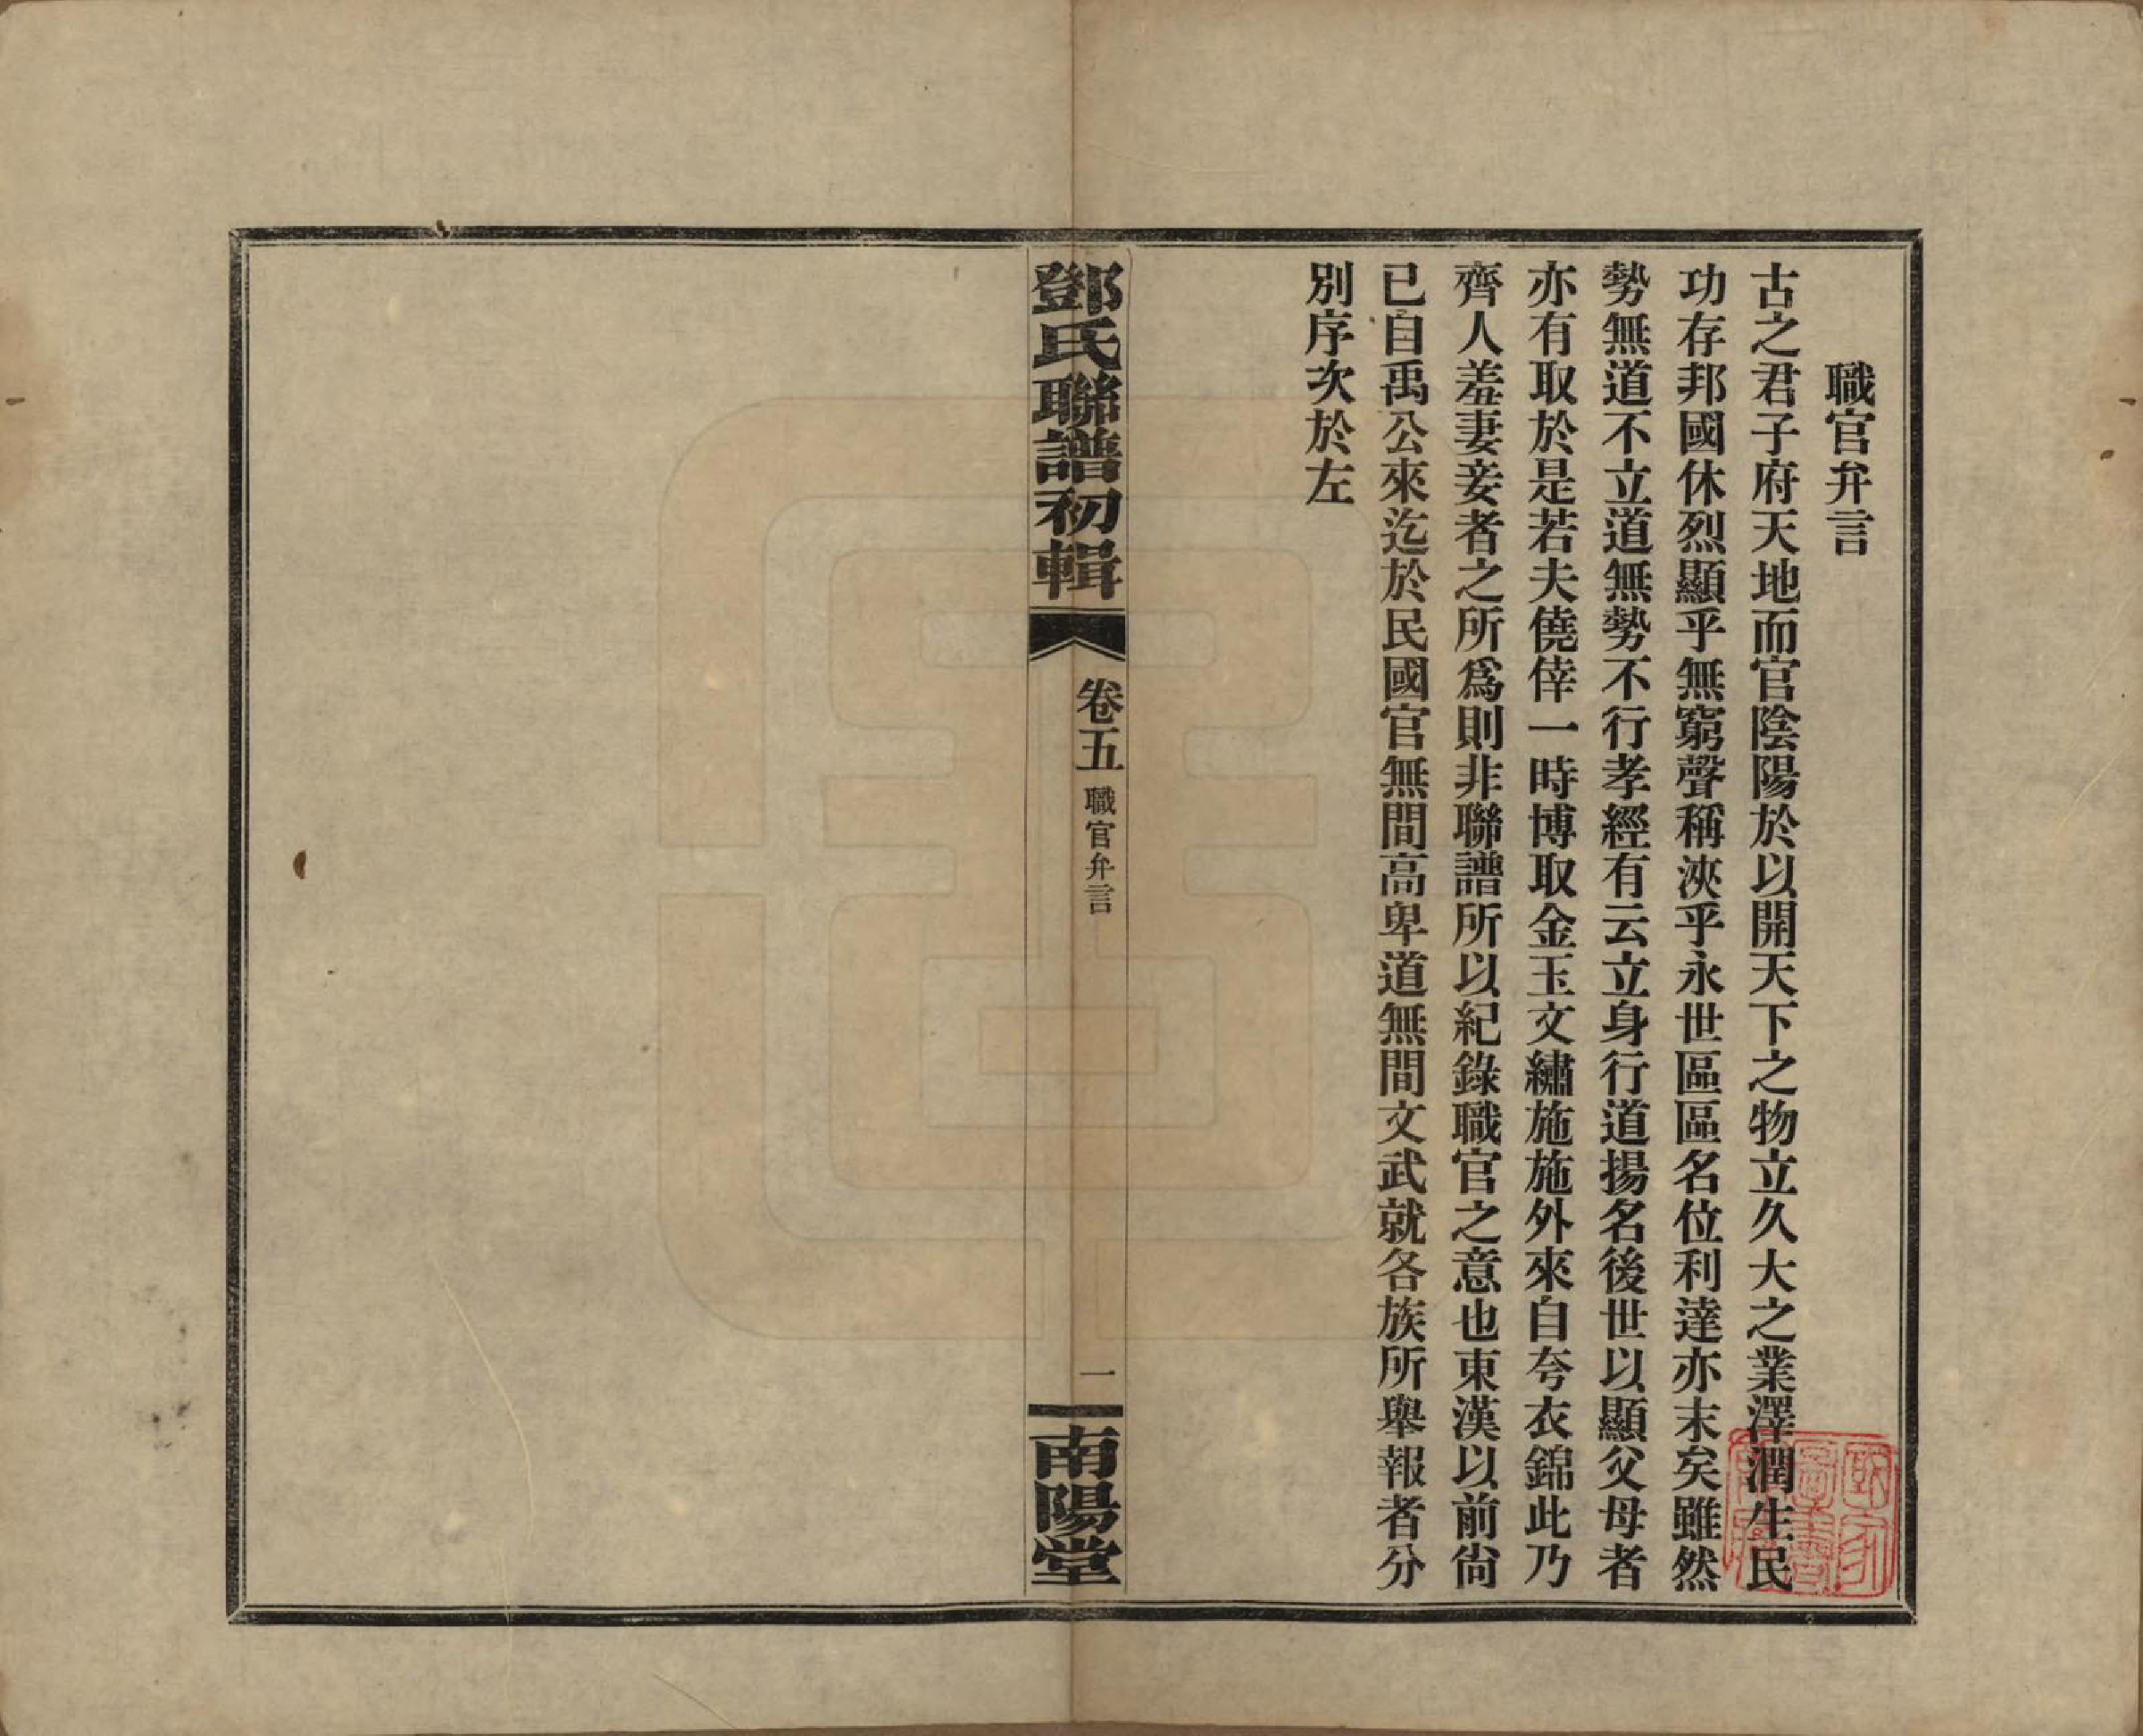 職官弁言
古之君子府天地而官陰陽於以開天下之物立久大之業澤潤生民
功存邦國休烈顯乎無窮聲稱浹乎永世區區名位利達亦末矣雖然
勢無道不立道無勢不行孝經有云立身行道揚名後世以顯父母者
亦有取於是若夫僥倖一時博取金玉文繡施施外來自夸衣錦此乃
齊人羞妻妾者之所爲則非聯譜所以紀錄職官之意也東漢以前尙
已自禹公來迄於民國官無間高卑道無間文武就各族所舉報者分
別序次於左
鄧氏聯譜初輯
卷五
職官弁言
一
南陽堂